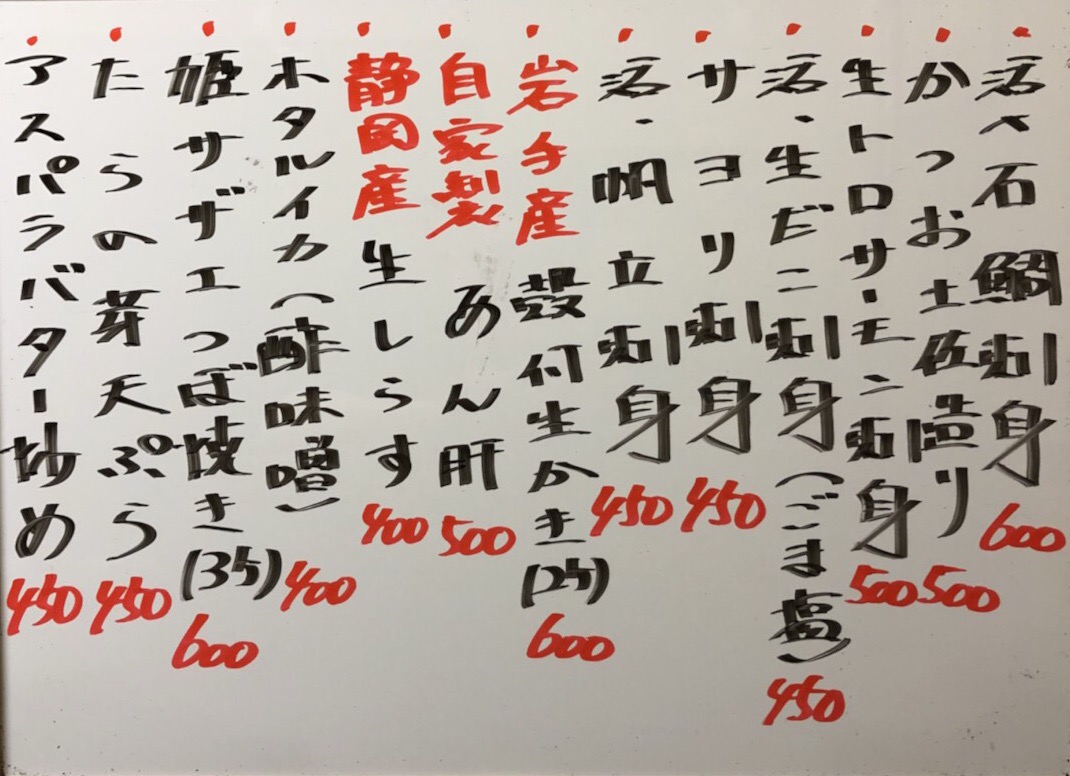 活〆石鯛刺身 600
かつお土佐造り 500
生トロサーモン刺身 500
活・生だこ刺身(ごま塩) 450
サヨリ刺身 450
活・帆立刺身 450
岩手産 殻付生かき(2ケ) 600
自家製 あん肝 500
静岡産 生しらす 400
ホタルイカ(酢味噌) 400
姫サザエつぼ焼き(3ケ) 600
たらの芽天ぷら 450
アスパラバター炒め 450